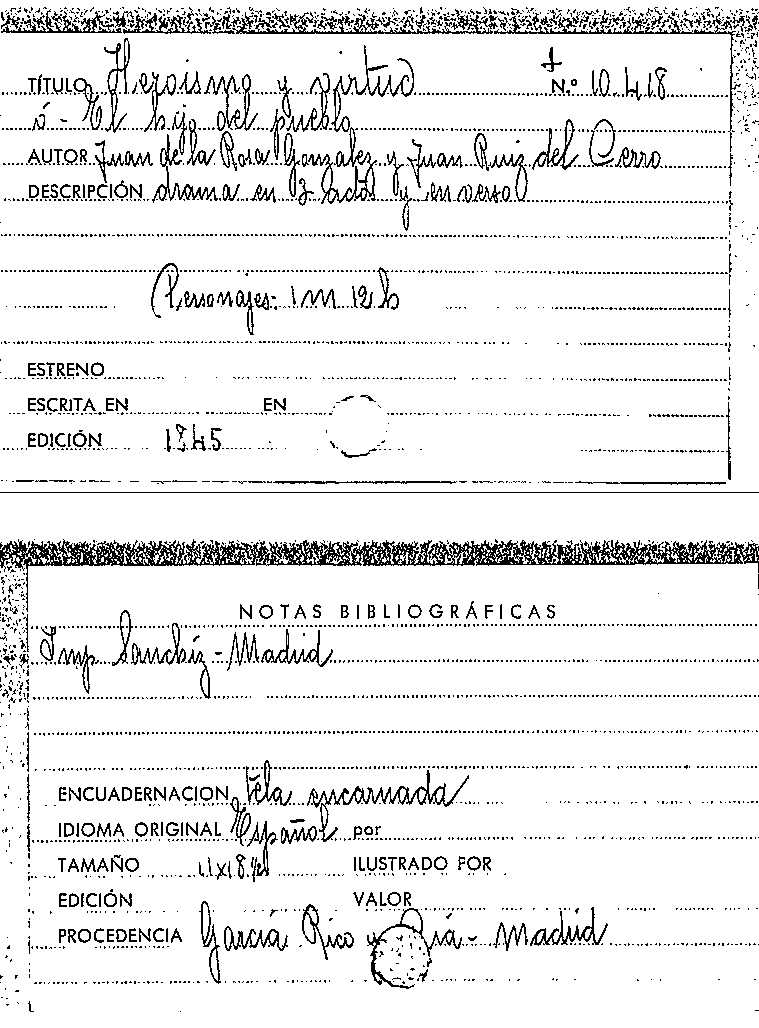 TÍTULO Heroismo y virtud N.º 10.418
ó - El hijo del pueblo
AUTOR Juan de la Rosa Gonzalez y Juan Ruiz del Cerro
DESCRIPCIÓN drama en 3 actos y en verso
Personajes: 1 m 12 h
ESTRENO
ESCRITA EN EN
EDICIÓN 1845
NOTAS BIBLIOGRÁFICAS
Imp Sanchiz - Madrid
ENCUADERNACION tela encarnada
IDIOMA ORIGINAL Español por
TAMAÑO ILUSTRADO POR
EDICIÓN VALOR
PROCEDENCIA García Rico y Cía - Madrid